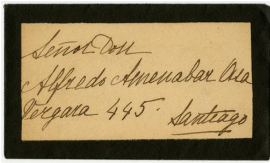 Señor Don
Alfredo Amenabar Ossa
Vergara 445.
Santiago